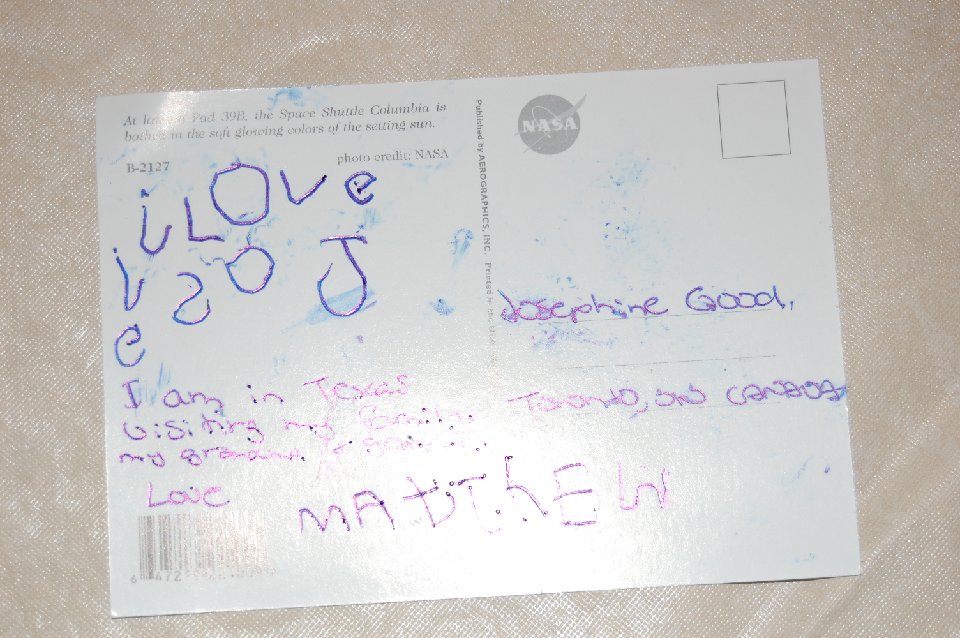 At Pad 39B, the Space Shuttle Columbia is
bathed in the soft glowing colors of the setting sun.
B-2127
photo credit: NASA
i LOve
JOSI
e
I am in Texas
visiting my family.
my grandma &
Love
MATTHEW
Published by AEROGRAPHICS, INC. Printed in
NASA
Josephine Good,
Toronto, ON CANADA